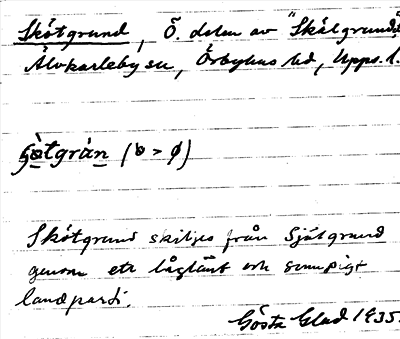 Skötgrund, Ö. delen av "Skälgrund
Älvkarleby sn, Örbyhus hd, Upps. l.
(ɞ > ø)
Skötgrund skiljes från Själgrund
genom ett låglänt och sumpigt
landparti.
Gösta Glad 1935.